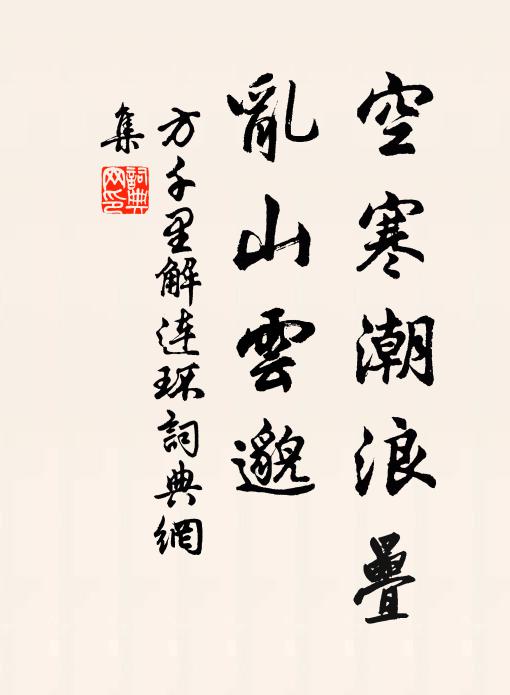 空寒潮浪疊
亂山雲邈
方千里解連環詞典網
集
詞典
网印